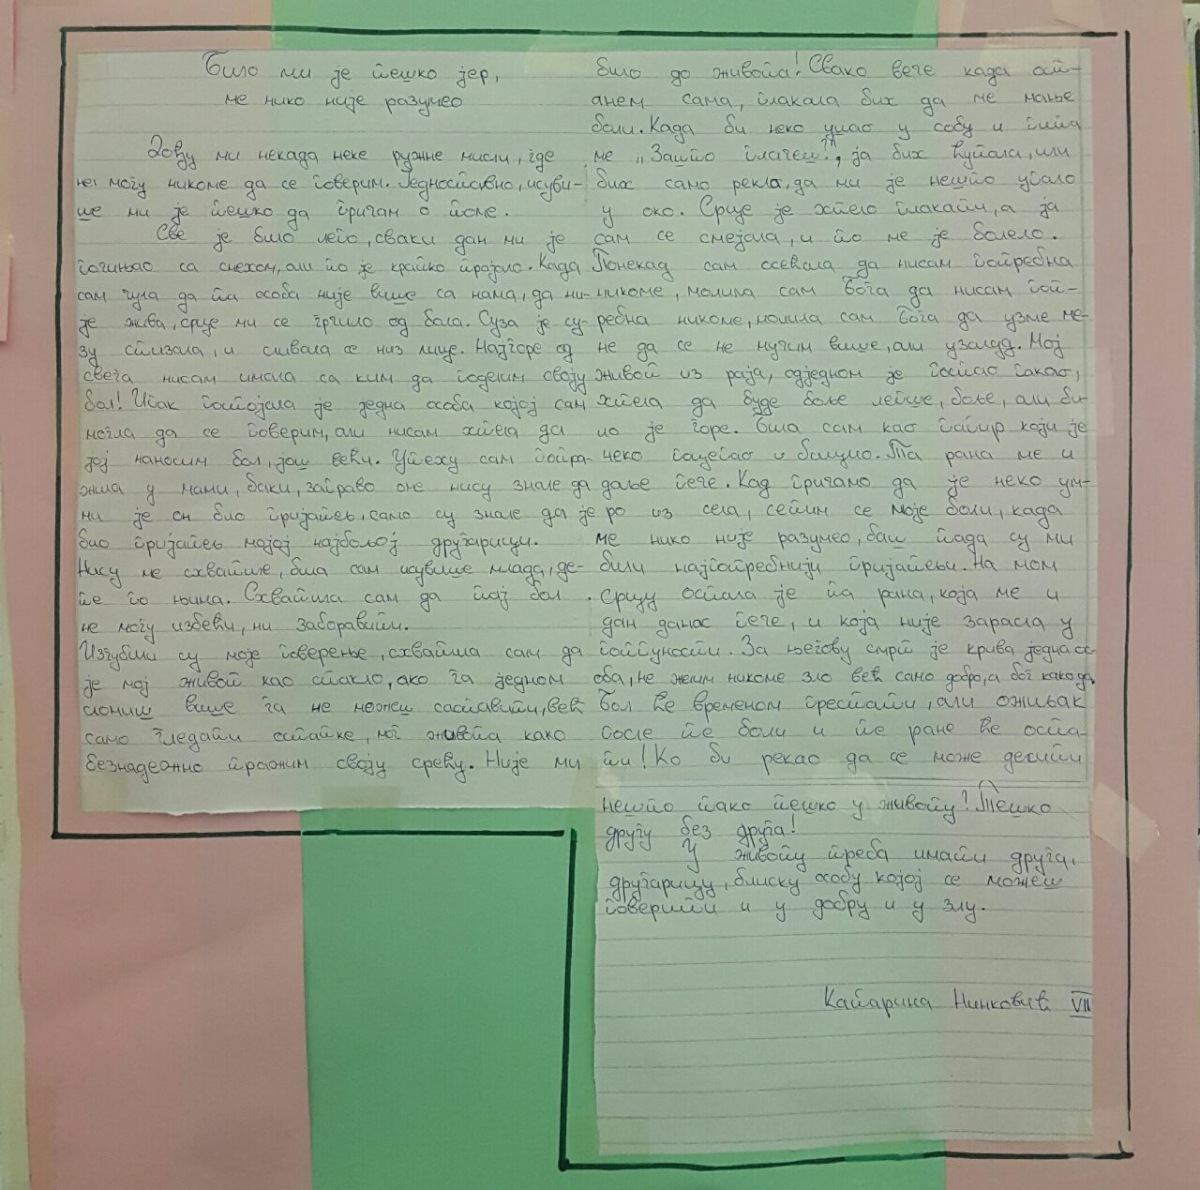 Било ми је тешко јер,
ме нико није разумео
Дођу ми некада неке ружне мисли, где
не могу никоме да се поверим. Једноставно, исуви-
ше ми је тешко да причам о томе.
Све је било лепо, сваки дан ми је
почињао са смехом, али то је кратко трајало. Када
сам чула да та особа није више са нама, да ни-
је жива, срце ми се грчило од бола. Суза је су-
зу стизала, и сливала се низ лице. Најгоре од
свега нисам имала са ким да поделим своју
бол! Ипак постојала је једна особа којој сам
могла да се поверим, али нисам хтела да
јој наносим бол, још већи. Утеху сам потра-
жила у мами, баки, заправо оне нису знале да
ми је он био пријатељ, само су знале да је
био пријатељ мојој најбољој другарици.
Нису ме схватиле, била сам исувише млада, де-
те по њима. Схватила сам да тај бол
не могу избећи, ни заборавити.
Изгубили су моје поверење, схватила сам да
је мој живот као стакло, ако га једном
сломиш више га не можеш саставити, већ
само гледати остатке, мог живота како
безнадежно тражим своју срећу. Није ми
било до живота! Свако вече када ост-
анем сама, плакала бих да ме мање
боли. Када би неко ушао у собу и пита
ме „Зашто плачеш?", ја бих ћутала, или
бих само рекла, да ми је нешто упало
у око. Срце је хтело плакати, а ја
сам се смејала, и то ме је болело.
Понекад сам осећала да нисам потребна
никоме, молила сам Бога да нисам пот-
ребна никоме, молила сам Бога да узме ме-
не да се не мучим више, али узалуд. Мој
живот из раја, одједном је постао пакао,
хтела да буде боље лепше, боље, али би-
ло је горе. Била сам као папир који је
неко поцепао и бацио. Та рана ме и
даље пече. Кад причамо да је неко ум-
ро из села, сетим се моје боли, када
ме нико није разумео, баш тада су ми
били најпотребнији пријатељи. На мом
срцу остала је та рана, која ме и
дан данас пече, и која није зарасла у
потпуности. За његову смрт је крива једна ос-
оба, не желим никоме зло већ само добро, а бог како да.
Бол ће временом престати, али ожиљак
после те боли и те ране ће оста-
ти! Ко би рекао да се може десити
нешто тако тешко у животу? Тешко
другу без друга!
У животу треба имати друга,
другарицу, блиску особу којој се можеш
поверити и у добру и у злу.
Катарина Нинковић VII